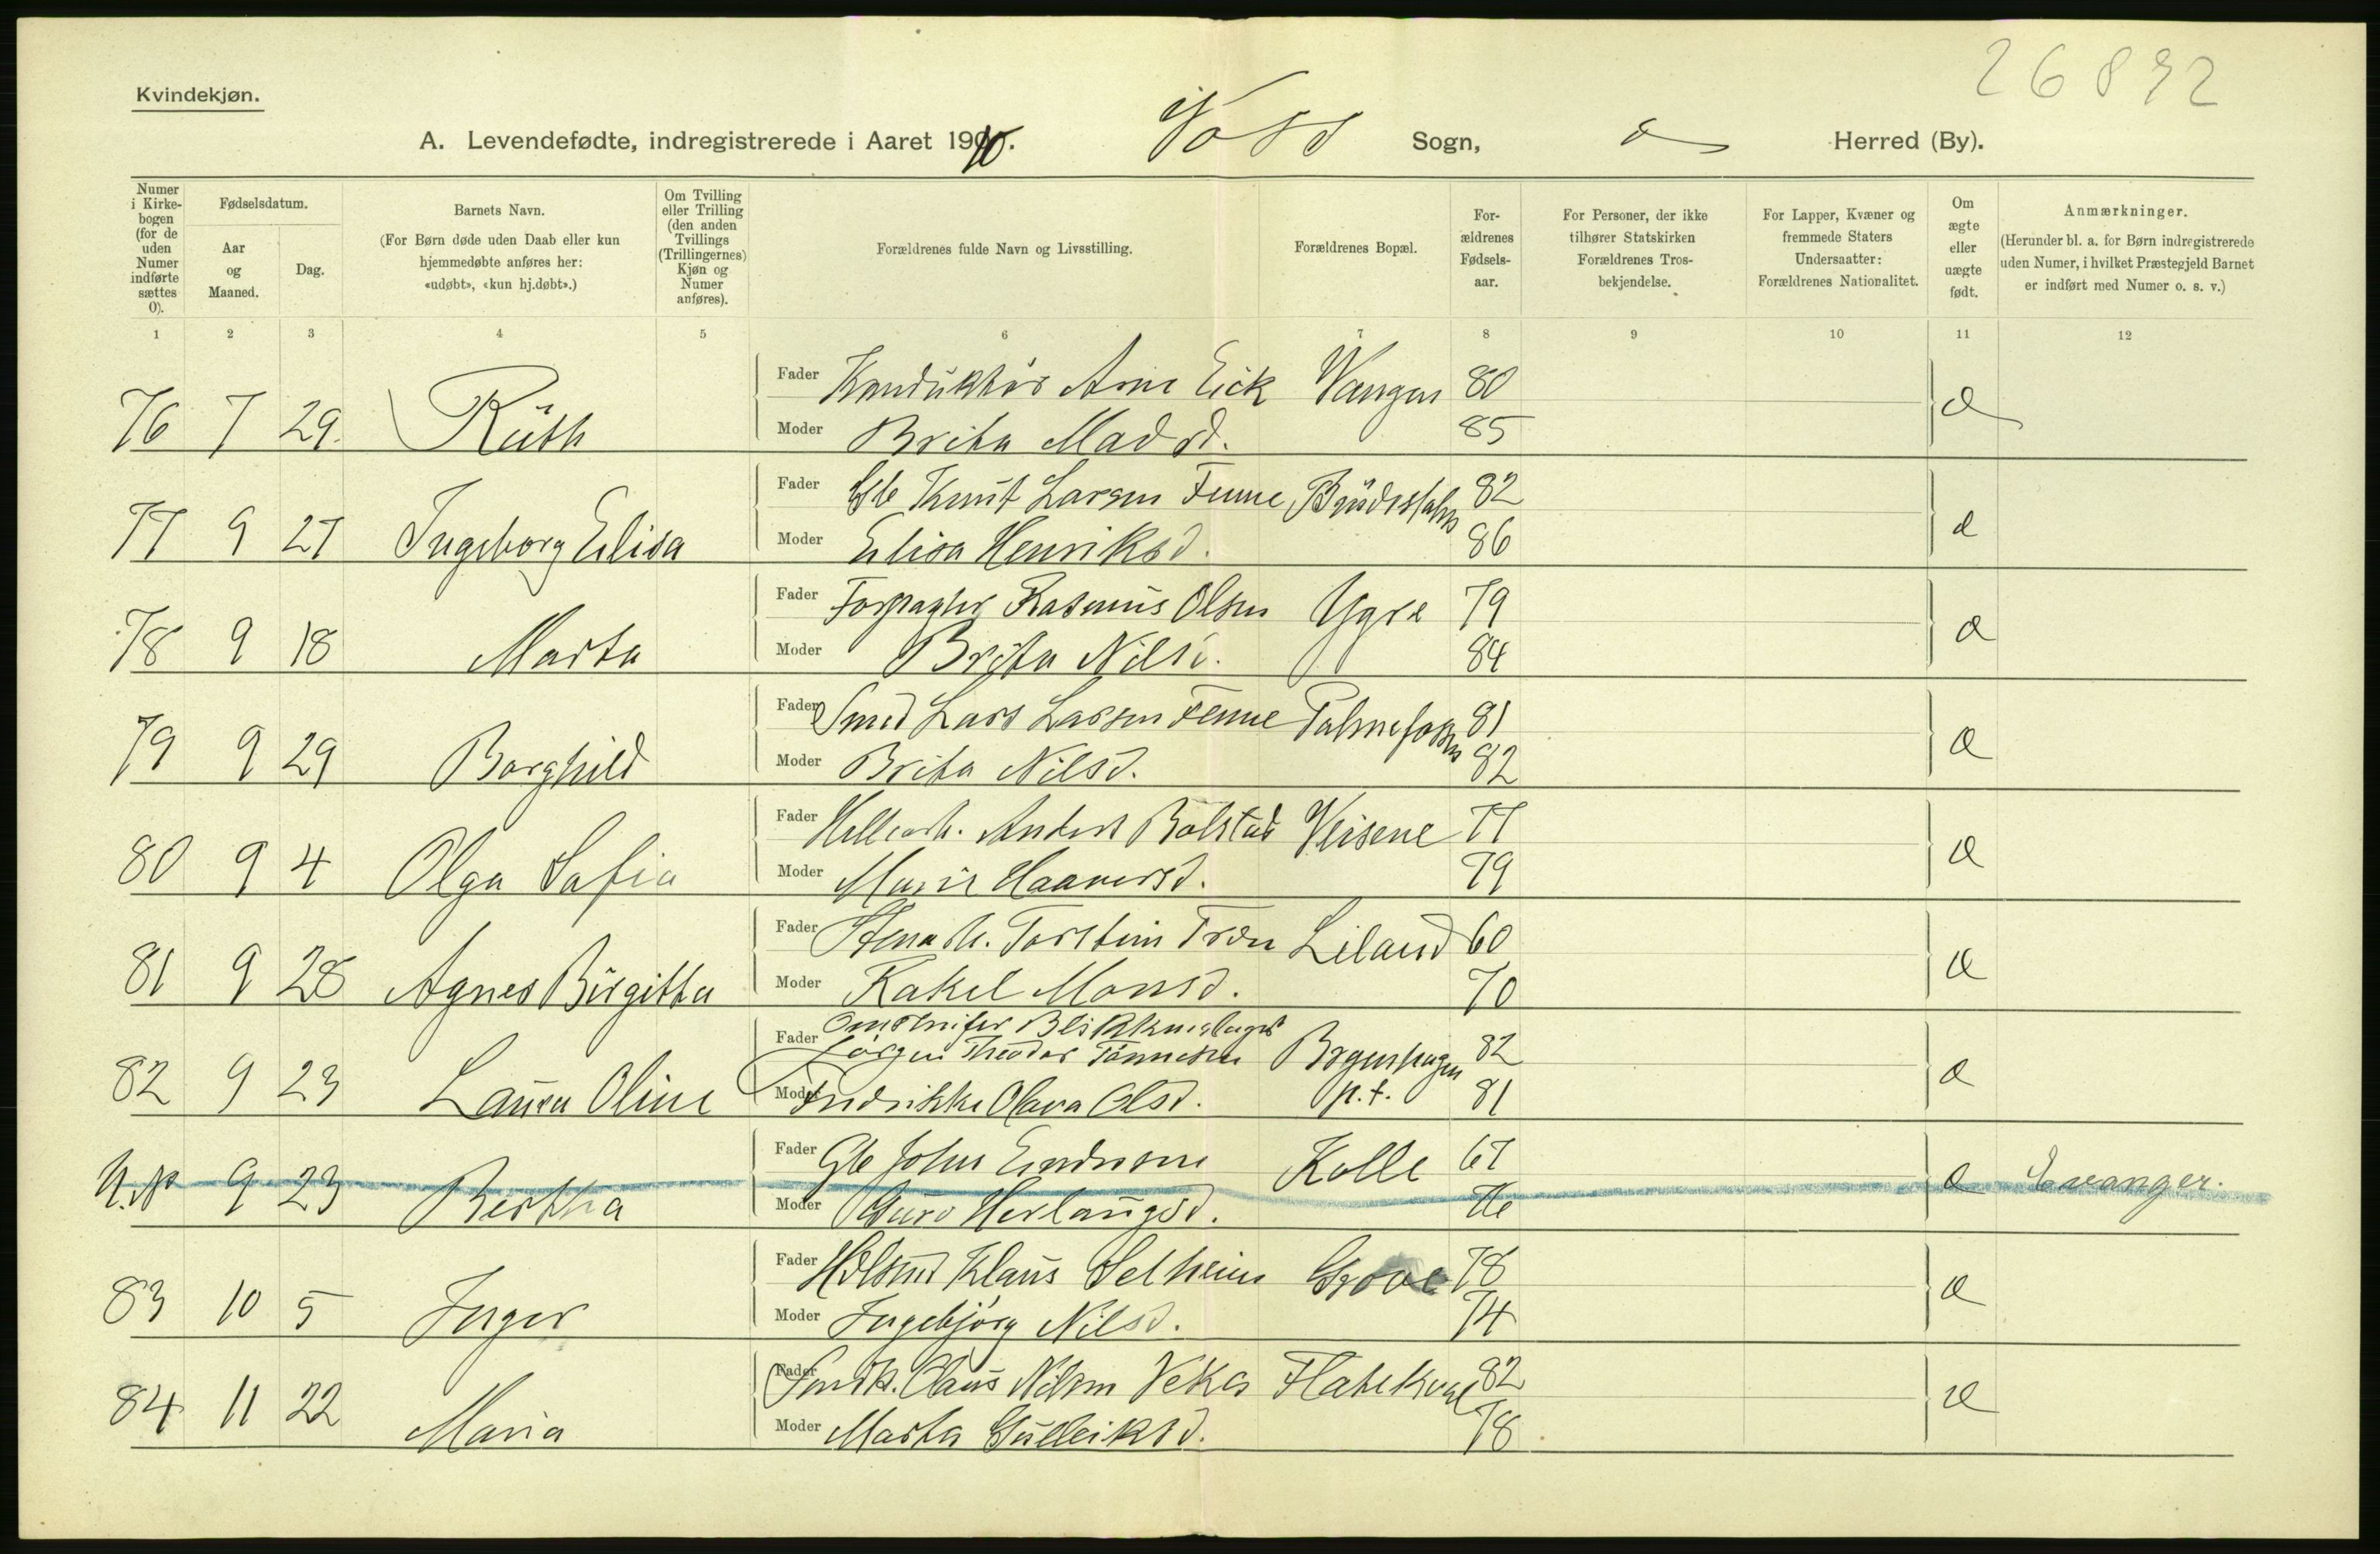 26892
Kvindekjøn.
A. Levendefødte, indregistrerede i Aaret 1910. Voss Sogn, Herred (By).
Numer i Kirkebogen (for de uden Numer indførte sættes 0).
Fødselsdatum.
Aar og Maaned.
Dag.
Barnets Navn.
(For Børn døde uden Daab eller kun hjemmedøbte anføres her: «udøbt», «kun hj.døbt».)
Om Tvilling eller Trilling (den anden Tvillings (Trillingernes) Kjøn og Numer anføres).
Forældrenes fulde Navn og Livsstilling.
Forældrenes Bopæl.
For-ældrenes Fødsels-aar.
For Personer, der ikke tilhører Statskirken Forældrenes Tros-bekjendelse.
For Lapper, Kvæner og fremmede Staters Undersaatter: Forældrenes Nationalitet.
Om ægte eller uægte født.
Anmærkninger.
(Herunder bl. a. for Børn indregistrerede uden Numer, i hvilket Præstegjeld Barnet er indført med Numer o. s. v.)
1 2 3 4 5 6 7 8 9 10 11 12
Fader Konduktør Arne Eick Vangen 80
76 7 29. Ruth Moder Brita Madsd. 85 æ
Fader Gbr Knut Larsen Fenne 82
77 9 27 Ingeborg Elisa Moder Elisa Henriksd. 86 æ
Fader Forpagter Rasmus Olsen Ygre 79
78 9 18 Marta Moder Brita Nilsd. 84 æ
Fader Smed Lars Larsen Fenne Palmefossen 81
79 9 29 Borghild Moder Brita Nilsd. 82 æ
Fader Anders Bolstad Veisene 77
80 9 4 Olga Sofia Moder Marie Haaversd. 79 æ
Fader Torstein Træn Liland 60
81 9 28 Agnes Birgitta Moder Rakel Monsd. 70 æ
Fader Omstreifer Blikkenslager
Jørgen Theodor Tønnesen 82
82 9 23 Laura Oline Moder Fredrikke Olava Olsd. p.t. 81 æ
Fader Gbr John Eindresen Kolle 67
U. N 9 23 Bertha Moder Guro Herlaugsd. 76 æ Evanger.
Fader Klaus Selheim Grove 78
83 10 5 Inger Moder Ingebjørg Nilsd. 74 æ
Fader Claus Nilsen Flatekval 82
84 11 22 Maria Moder Marta Gulleiksd. 78 æ